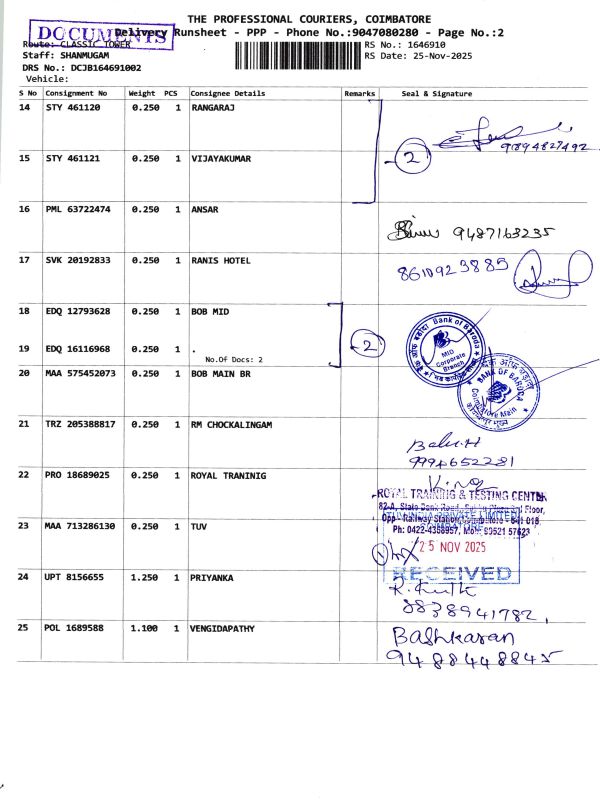 THE PROFESSIONAL COURIERS, COIMBATORE
DOCUMENTS
Delivery Runsheet - PPP - Phone No.:9047080280 - Page No.:2
Route: CLASSIC TOWER
RS No.: 1646910
Staff: SHANMUGAM
RS Date: 25-Nov-2025
DRS No.: DCJB164691002
Vehicle:
S No Consignment No Weight PCS Consignee Details Remarks Seal & Signature
14 STY 461120 0.250 1 RANGARAJ
9894827492
15 STY 461121 0.250 1 VIJAYAKUMAR
2
16 PML 63722474 0.250 1 ANSAR
9487163235
17 SVK 20192833 0.250 1 RANIS HOTEL
8610923885
18 EDQ 12793628 0.250 1 BOB MID
Bank of Baroda
2
MID Corporate Branch
19 EDQ 16116968 0.250 1 .
No.Of Docs: 2
20 MAA 575452073 0.250 1 BOB MAIN BR
BANK OF BARODA
Coimbatore Main
21 TRZ 205388817 0.250 1 RM CHOCKALINGAM
9994652281
22 PRO 18689025 0.250 1 ROYAL TRANINIG
ROYAL TRAINING & TESTING CENTER
82-A, State Bank Road, Floor,
Opp - Railway Station, Coimbatore - 641 018.
Ph: 0422-4358957, Mob: 99521 57623
23 MAA 713286130 0.250 1 TUV
PRIVATE LIMITED
COIMBATORE
1
25 NOV 2025
RECEIVED
24 UPT 8156655 1.250 1 PRIYANKA
8838941782,
25 POL 1689588 1.100 1 VENGIDAPATHY
Bashkaran
9488448845